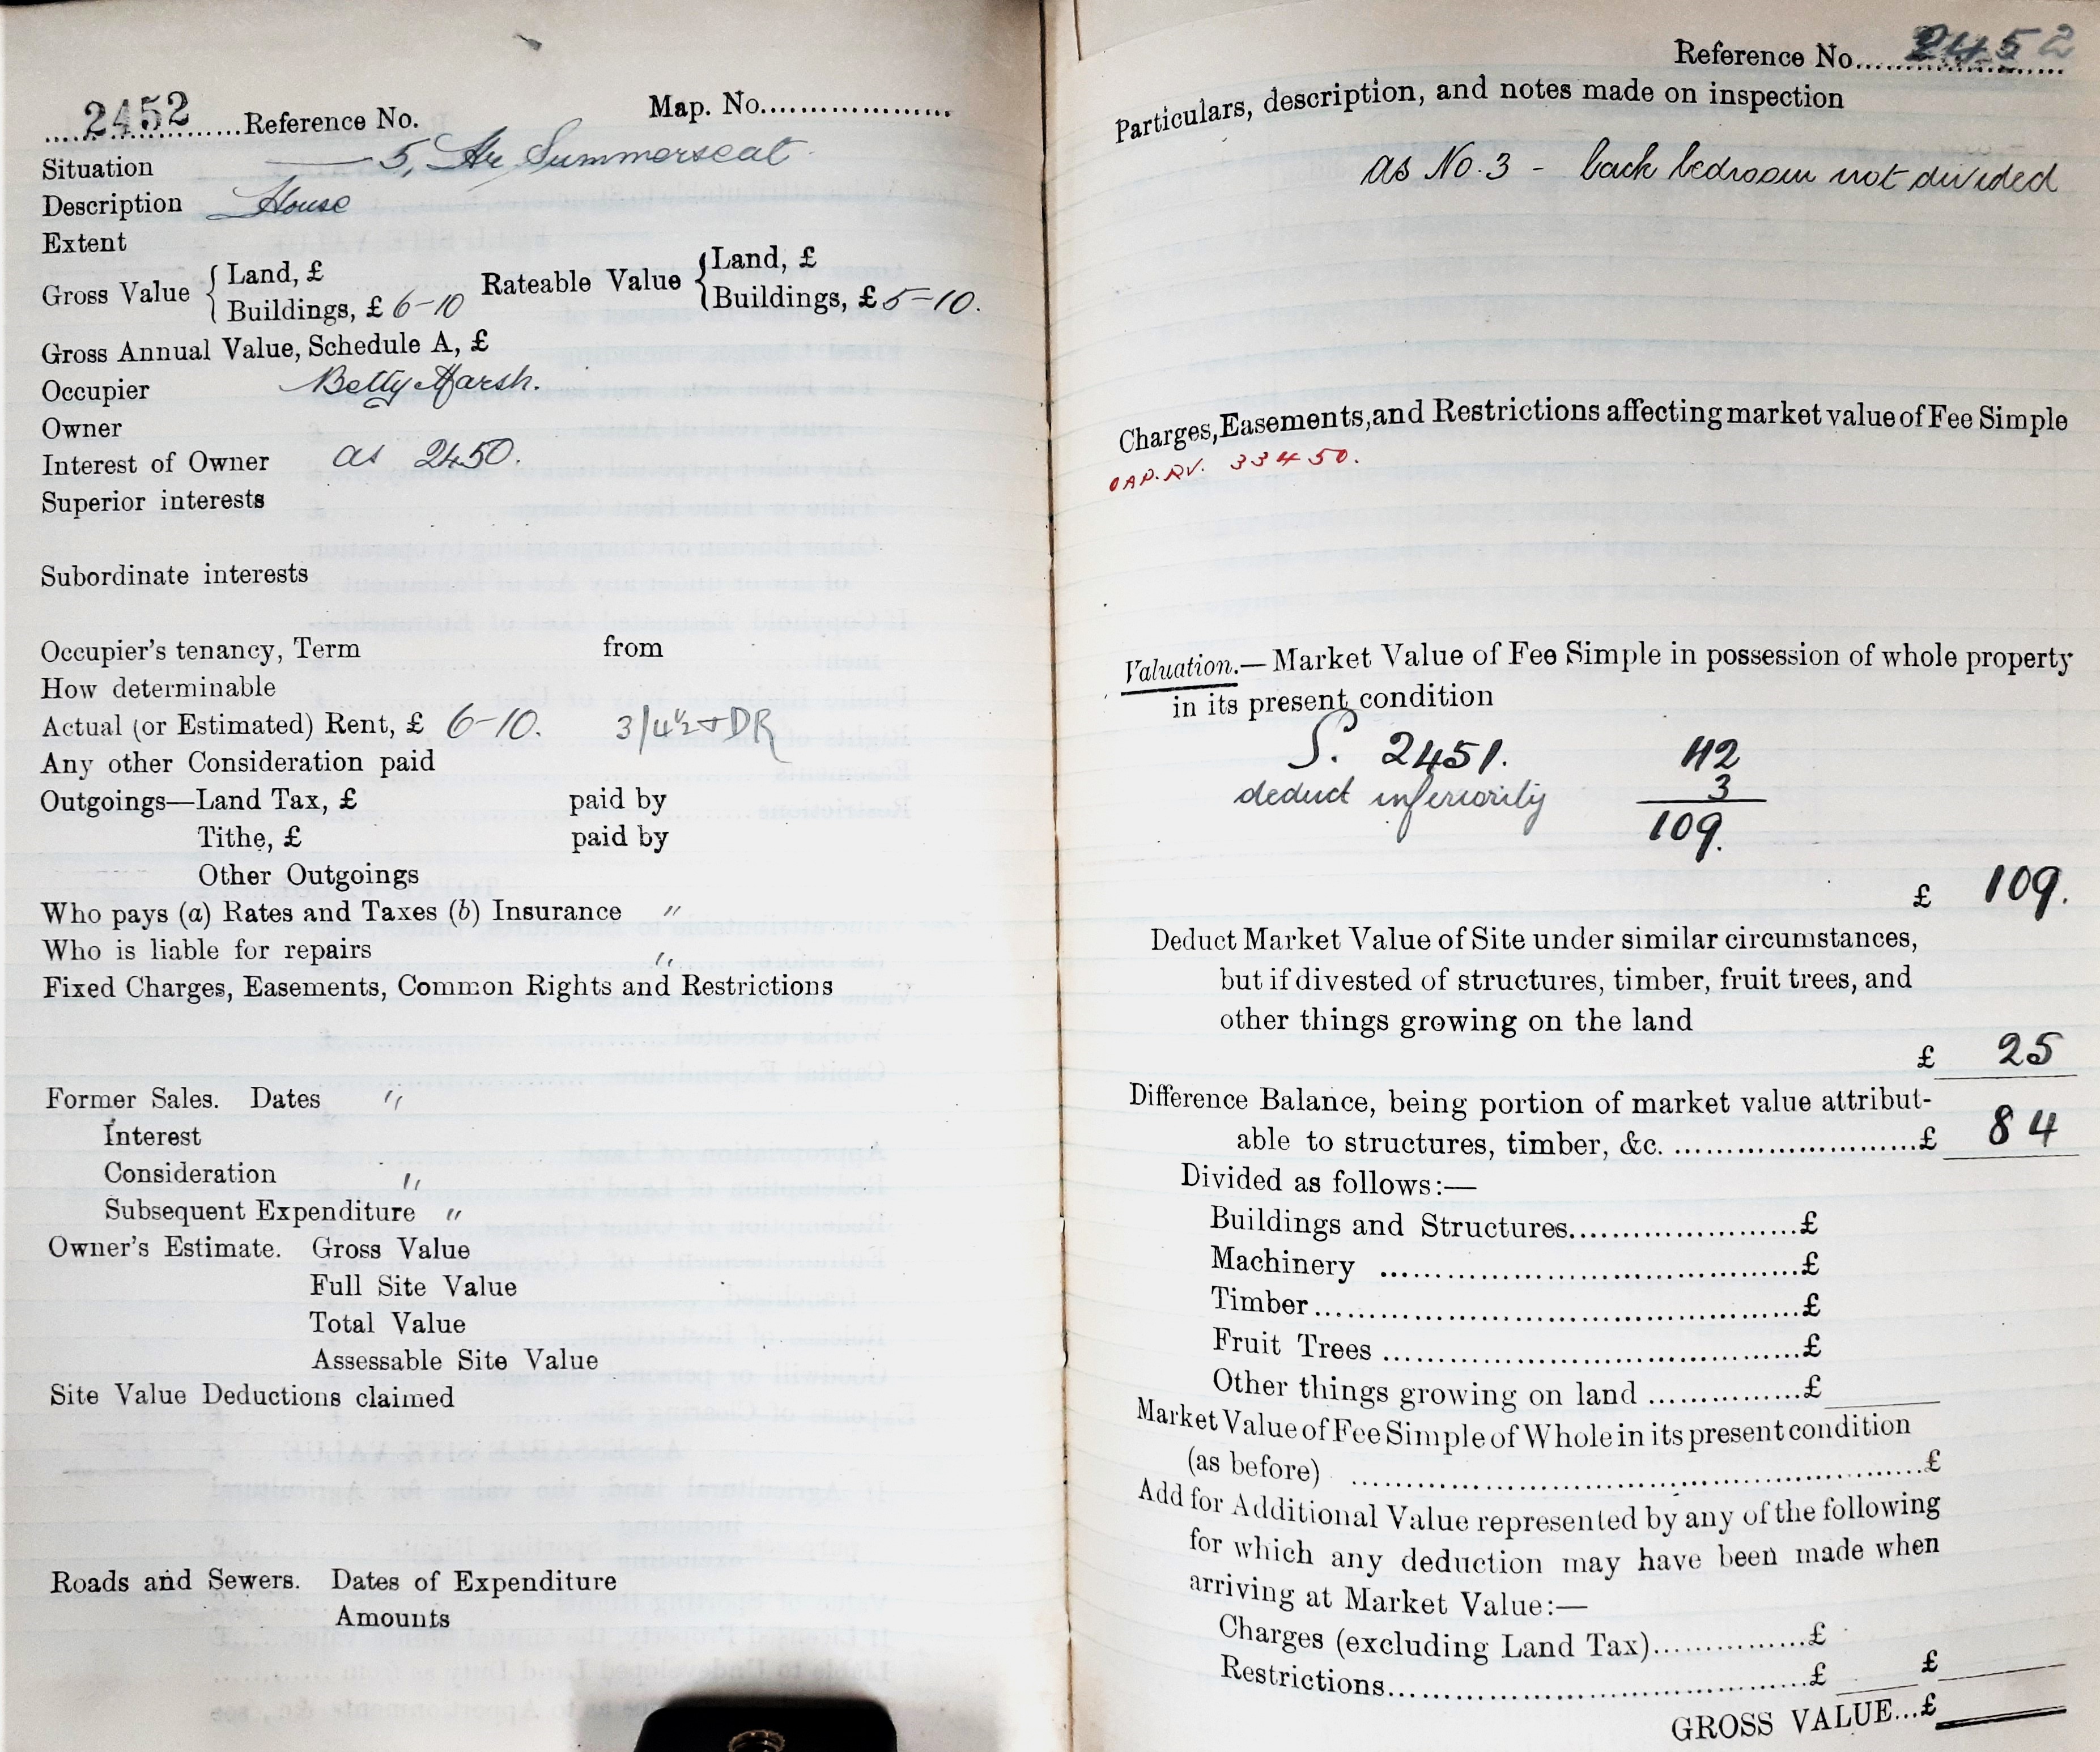 2452 Reference No. Map. No.
Situation 5, Hr Summerseat
Description House
Extent
Gross Value { Land, £ Rateable Value { Land, £
Buildings, £ 6-10 Buildings, £ 5-10.
Gross Annual Value, Schedule A, £
Occupier Betty Marsh.
Owner
Interest of Owner as 2450.
Superior interests
Subordinate interests
Occupier's tenancy, Term from
How determinable
Actual (or Estimated) Rent, £ 6-10. 3/4½ + DR
Any other Consideration paid
Outgoings—Land Tax, £ paid by
Tithe, £ paid by
Other Outgoings
Who pays (a) Rates and Taxes (b) Insurance "
Who is liable for repairs "
Fixed Charges, Easements, Common Rights and Restrictions
Former Sales. Dates "
Interest
Consideration "
Subsequent Expenditure "
Owner's Estimate. Gross Value
Full Site Value
Total Value
Assessable Site Value
Site Value Deductions claimed
Roads and Sewers. Dates of Expenditure
Amounts
Reference No. 2452
Particulars, description, and notes made on inspection
as No. 3 - back bedroom not divided
Charges, Easements, and Restrictions affecting market value of Fee Simple
33450.
Valuation.—Market Value of Fee Simple in possession of whole property
in its present condition
S. 2451. 112
deduct inferiority 3
109.
£ 109.
Deduct Market Value of Site under similar circumstances,
but if divested of structures, timber, fruit trees, and
other things growing on the land
£ 25
Difference Balance, being portion of market value attribut-
able to structures, timber, &c. £ 84
Divided as follows:—
Buildings and Structures £
Machinery £
Timber £
Fruit Trees £
Other things growing on land £
Market Value of Fee Simple of Whole in its present condition
(as before) £
Add for Additional Value represented by any of the following
for which any deduction may have been made when
arriving at Market Value:—
Charges (excluding Land Tax) £
Restrictions £ £
GROSS VALUE...£